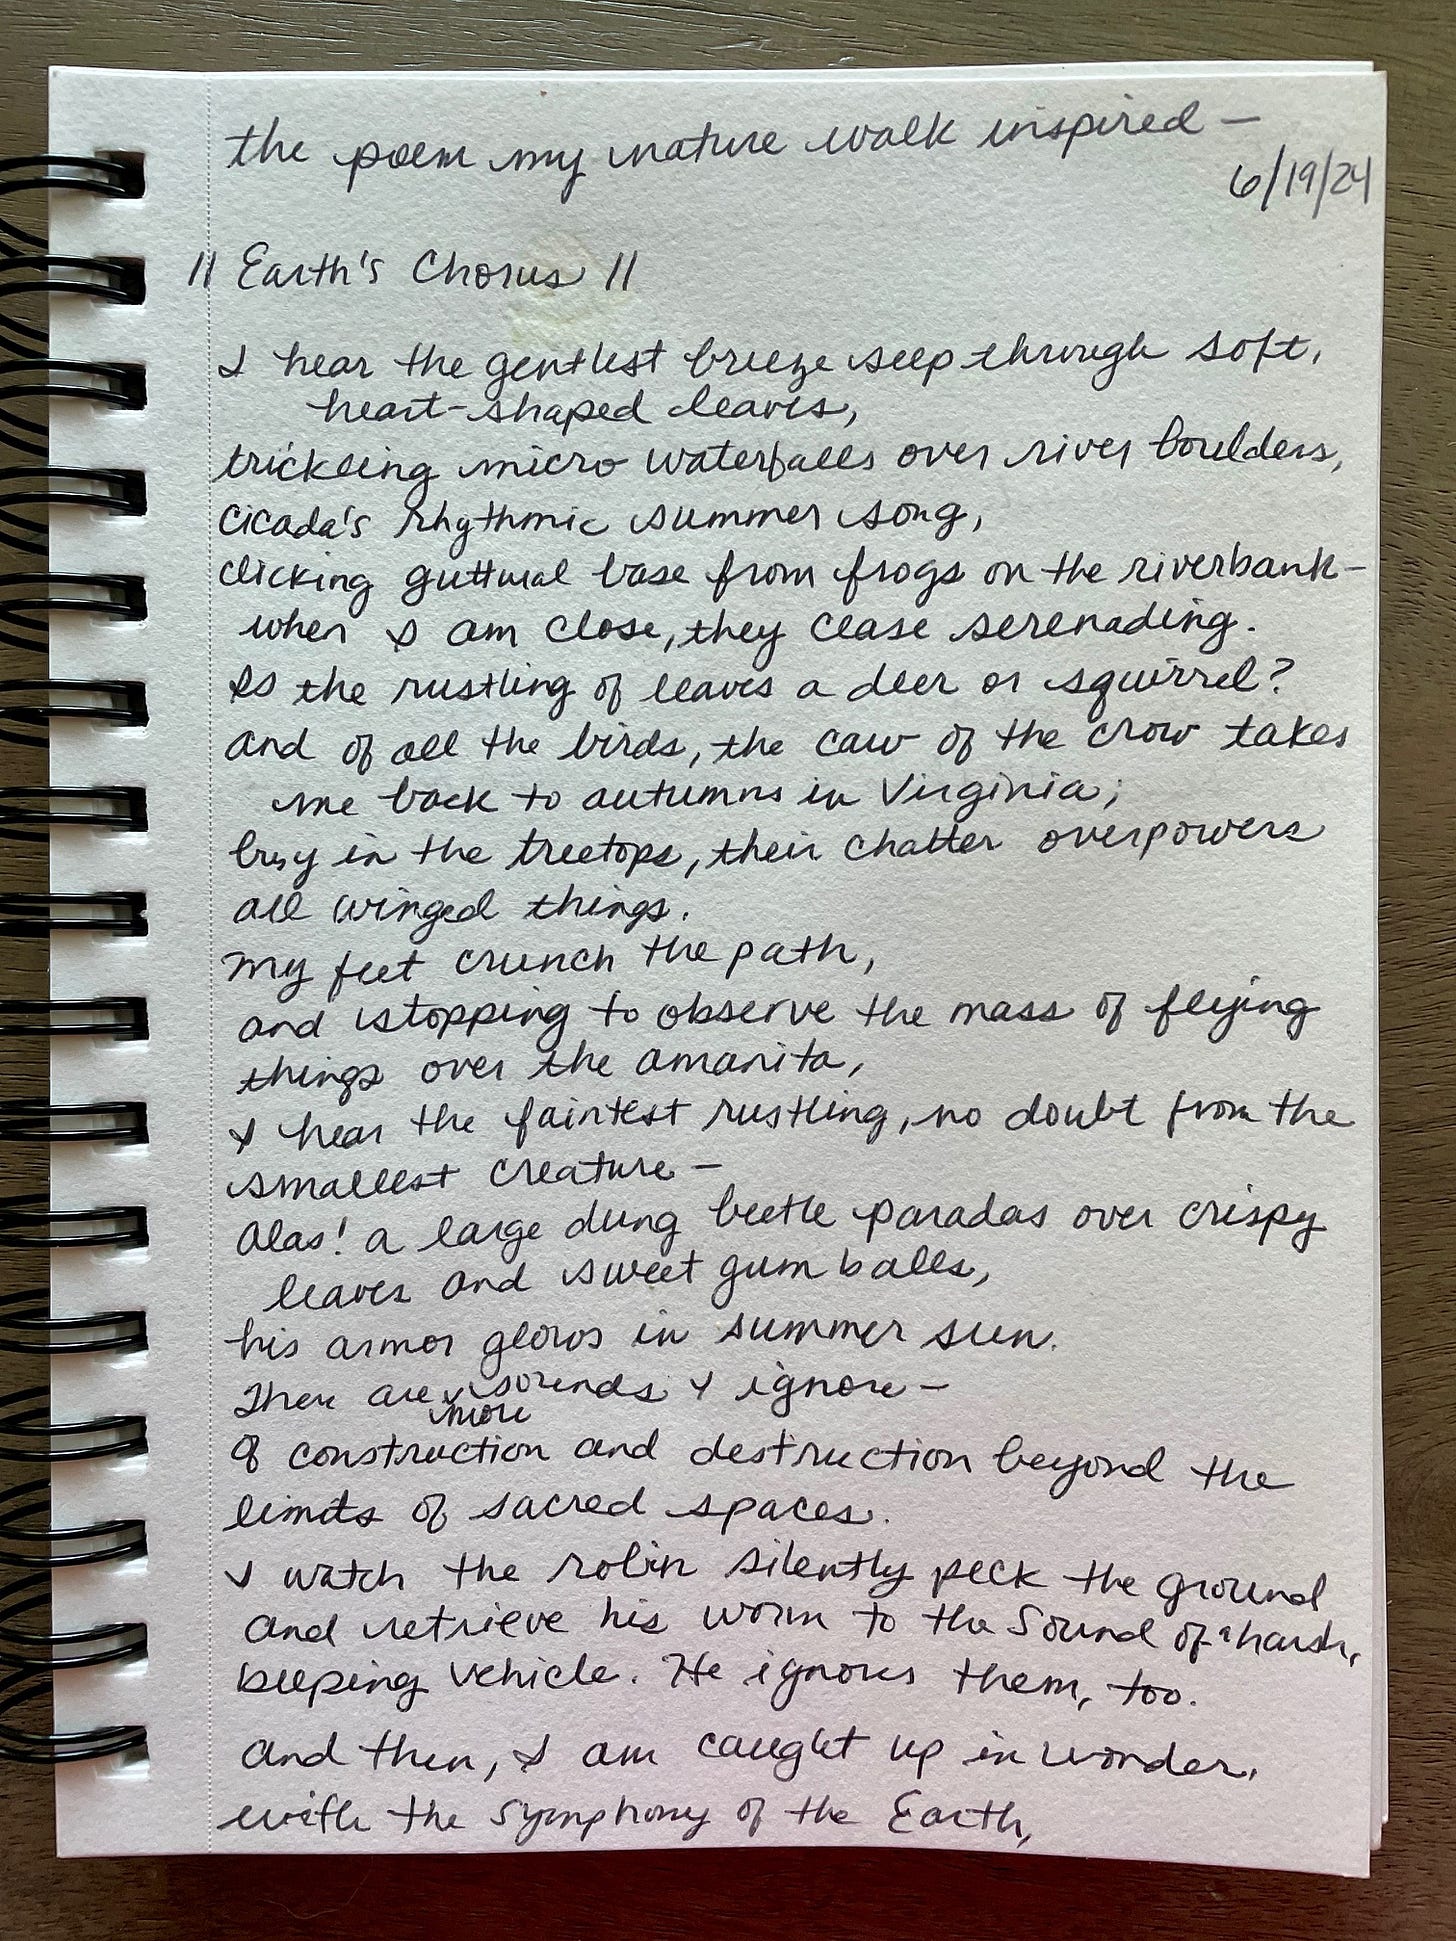 the poem my nature walk inspired —
6/19/24
// Earth's Chorus //
I hear the gentlest breeze seep through soft,
heart-shaped leaves,
trickling micro waterfalls over river boulders,
cicada's rhythmic summer song,
clicking guttural base from frogs on the riverbank—
when I am close, they cease serenading.
Is the rustling of leaves a deer or squirrel?
and of all the birds, the caw of the crow takes
me back to autumns in Virginia;
busy in the treetops, their chatter overpowers
all winged things.
My feet crunch the path,
and stopping to observe the mass of flying
things over the amanita,
I hear the faintest rustling, no doubt from the
smallest creature —
Alas! a large dung beetle paradas over crispy
leaves and sweet gum balls,
his armor glows in summer sun.
There are more sounds I ignore —
of construction and destruction beyond the
limits of sacred spaces.
I watch the robin silently peck the ground
and retrieve his worm to the sound of a harsh,
beeping vehicle. He ignores them, too.
And then, I am caught up in wonder,
with the symphony of the Earth,